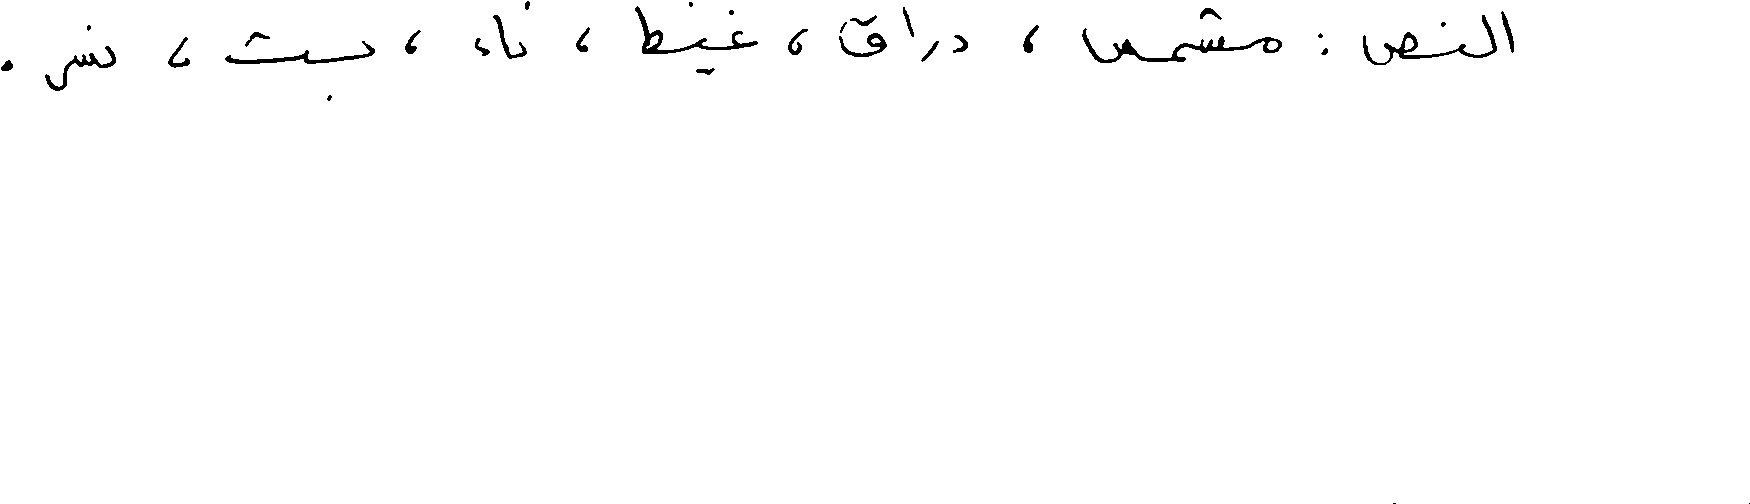 النص : مشمس ، دراق ، غيظ ، ناء ، سبت ، نسر .